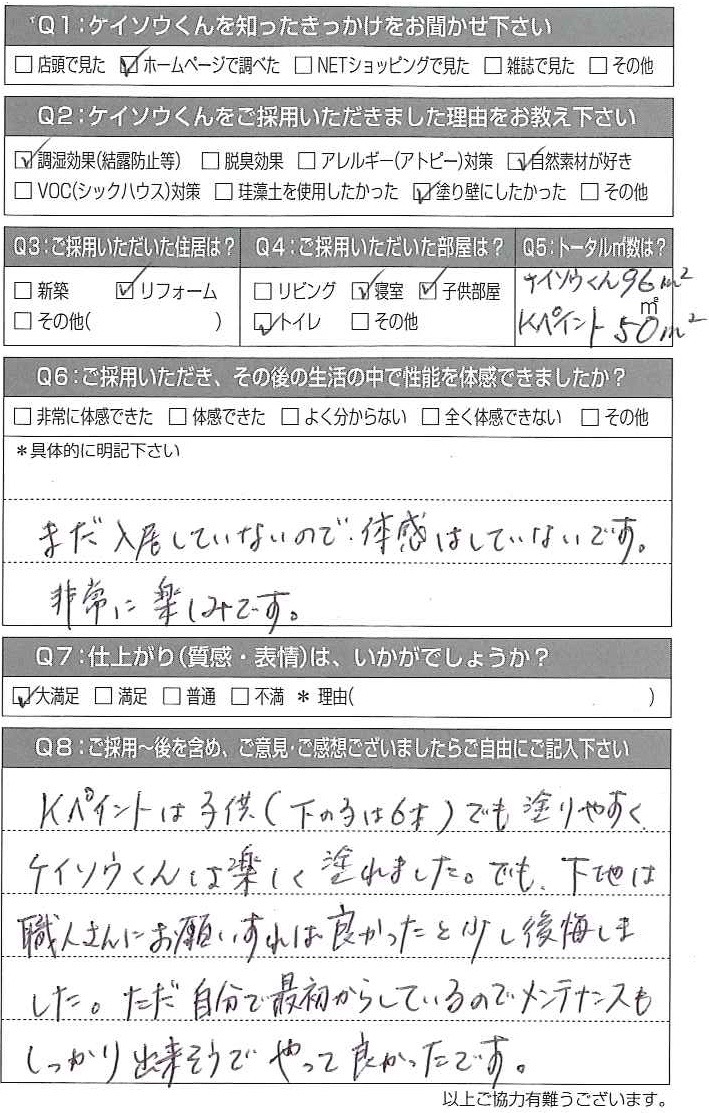 Q1:ケイソウくんを知ったきっかけをお聞かせ下さい
□店頭で見た ☑ホームページで調べた □NETショッピングで見た □雑誌で見た □その他
Q2:ケイソウくんをご採用いただきました理由をお教え下さい
☑調湿効果(結露防止等) □脱臭効果 □アレルギー(アトピー)対策 ☑自然素材が好き
□VOC(シックハウス)対策 □珪藻土を使用したかった ☑塗り壁にしたかった □その他
Q3:ご採用いただいた住居は? Q4:ご採用いただいた部屋は? Q5:トータル㎡数は?
□新築 ☑リフォーム □リビング ☑寝室 ☑子供部屋 ケイソウくん96m²
□その他( ) ☑トイレ □その他 Kペイント50m² ㎡
Q6:ご採用いただき、その後の生活の中で性能を体感できましたか?
□非常に体感できた □体感できた □よく分からない □全く体感できない □その他
*具体的に明記下さい
まだ入居していないので、体感はしていないです。
非常に楽しみです。
Q7:仕上がり(質感・表情)は、いかがでしょうか?
☑大満足 □満足 □普通 □不満 *理由( )
Q8:ご採用~後を含め、ご意見・ご感想ございましたらご自由にご記入下さい
Kペイントは子供(下の子は6才)でも塗りやすく、
ケイソウくんは楽しく塗れました。でも、下地は
職人さんにお願いすれば良かったと少し後悔しま
した。ただ自分で最初からしているのでメンテナンスも
しっかり出来そうでやって良かったです。
以上ご協力有難うございます。